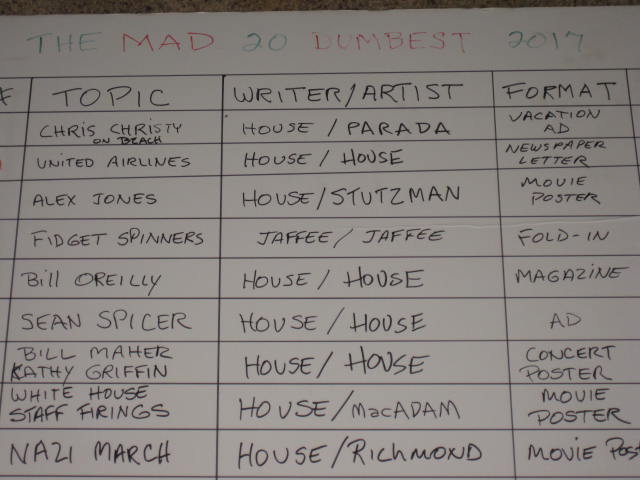 THE MAD 20 DUMBEST 2017
# TOPIC WRITER/ARTIST FORMAT
CHRIS CHRISTY ON BEACH HOUSE / PARADA VACATION AD
UNITED AIRLINES HOUSE / HOUSE NEWSPAPER LETTER
ALEX JONES HOUSE/STUTZMAN MOVIE POSTER
FIDGET SPINNERS JAFFEE/ JAFFEE FOLD-IN
Bill OREILLY HOUSE / HOUSE MAGAZINE
SEAN SPICER HOUSE / HOUSE AD
BILL MAHER KATHY GRIFFIN HOUSE/ HOUSE CONCERT POSTER
WHITE HOUSE STAFF FIRINGS HOUSE/MacADAM MOVIE POSTER
NAZI MARCH HOUSE/RICHMOND MOVIE POST